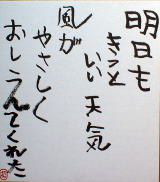 明日も
きっと
いい天気
風が
やさしく
おしえてくれた